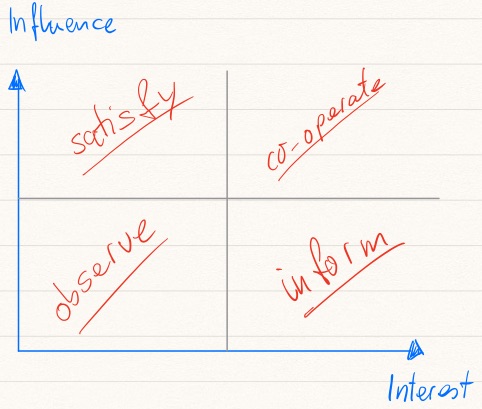 Influence
satisfy
co-operate
observe
inform
Interest